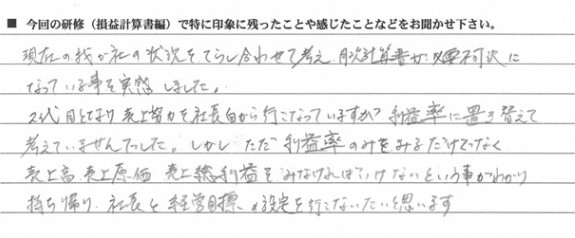 ■ 今回の研修（損益計算書編）で特に印象に残ったことや感じたことなどをお聞かせ下さい。
現在の我が社の状況をてらし合わせて考え、月次計算書が必要不可決に
なっている事を実感しました。
2代目となり売上努力を社長自から行こなっていますが？利益率に置き替えて
考えていませんでした。しかしただ利益率のみをみるだけでなく
売上高、売上原価 売上総利益をみなければいけないという事がわかり
持ち帰り、社長と経営目標の設定を行こないたいと思います